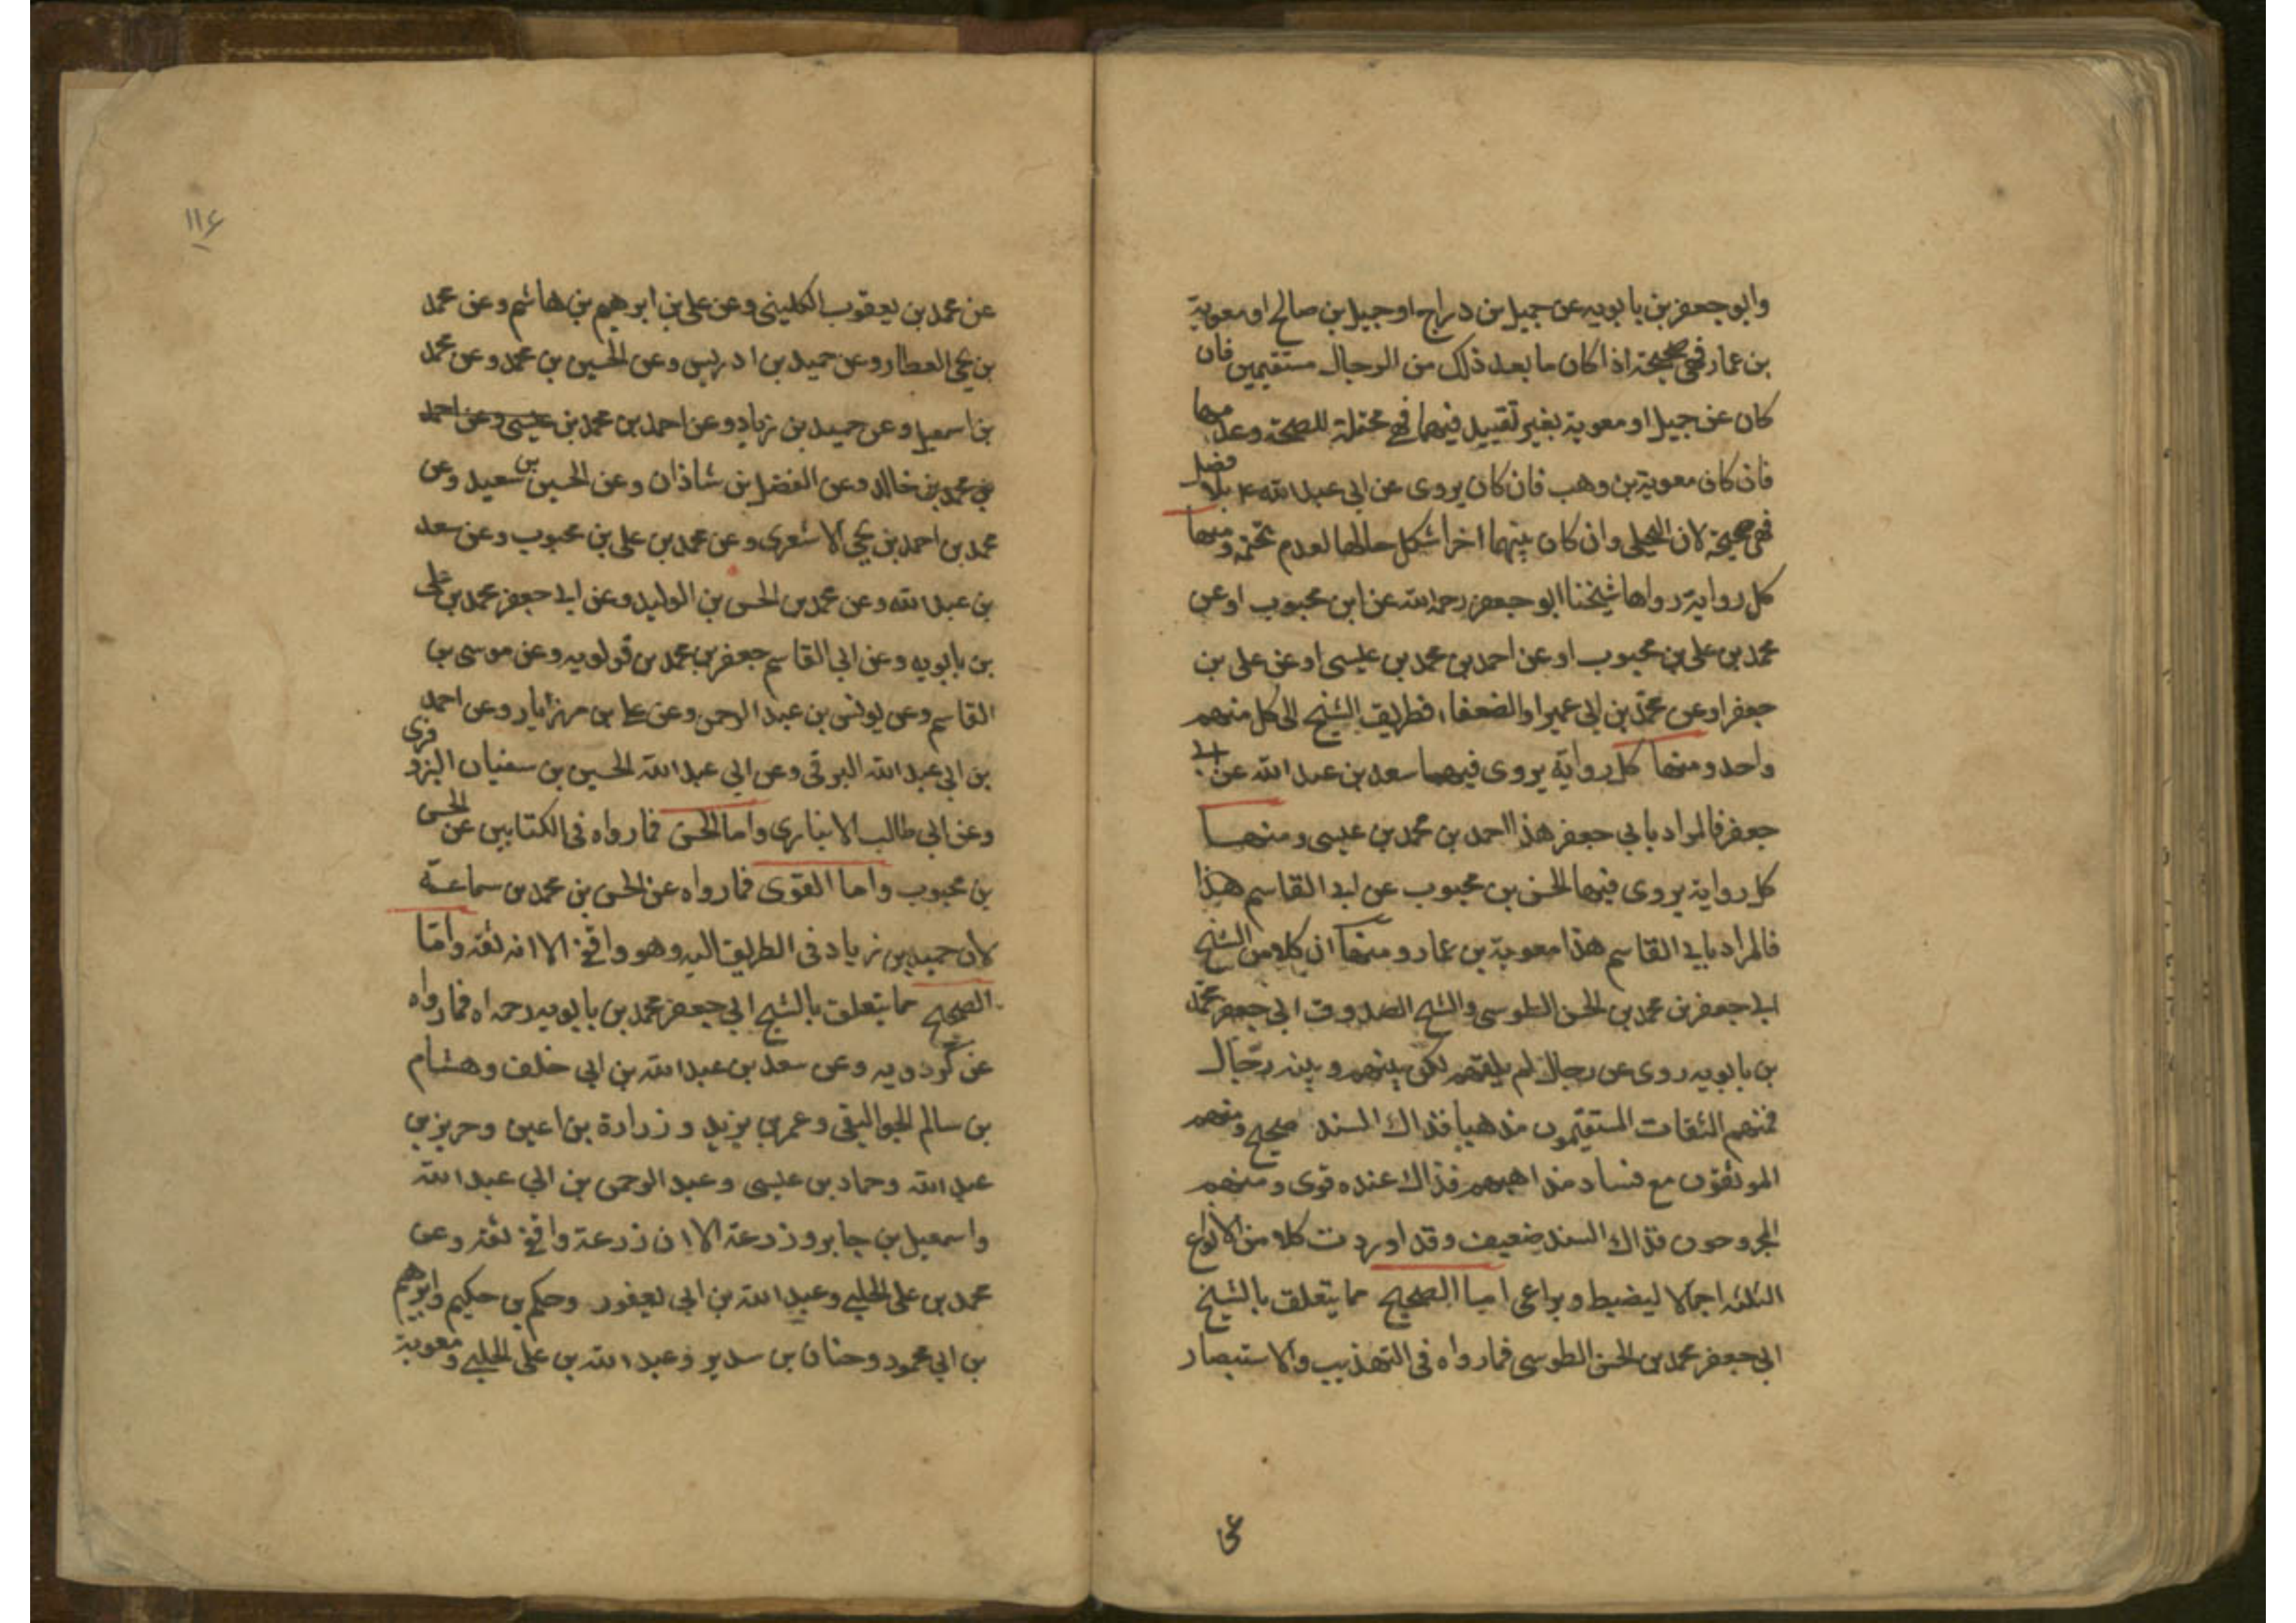 وابو جعفر بن بابويه عن جميل بن دراج او جميل بن صالح او معوية
بن عمار فهى صحيحة اذا كان ما بعد ذلك من الرجال مستقيمين فان
كان عن جميل او معوية بغير تقييد فيهما فهى محتملة للصحة وعدمها
فان كان معوية بن وهب فان كان يروى عن ابى عبد الله ع بلا فصل
فهى صحيحة لان البجلى وان كان بينهما اخر اشكل حالها لعدم تحتمه ومنها
كل رواية رواها شيخنا ابو جعفر رحمه الله عن ابن محبوب او عن
محمد بن على بن محبوب او عن احمد بن محمد بن عيسى او عن على بن
جعفر او عن محمد بن ابى عمير او الضعفا، فطريق الشيخ الى كل منهم
واحد ومنها كل رواية يروى فيها سعد بن عبد الله عن ابى
جعفر فالمراد بابي جعفر هذا احمد بن محمد بن عيسى ومنها
كل رواية يروى فيها الحسن بن محبوب عن ابى القاسم هذا
فالمراد بابى القاسم هذا معوية بن عمار ومنها ان كلا من الشيخ
ابى جعفر بن محمد بن الحسن الطوسى والشيخ الصدوق ابى جعفر محمد
بن بابويه روى عن رجال لم يلقهم لكن بينهم وبينه رجال
فمنهم الثقات المستقيمون مذهبا فذاك السند صحيح ومنهم
الموثقون مع فساد مذاهبهم فذاك عنده قوى ومنهم
المجروحون فذاك السند ضعيف وقد اوردت كلا من الانواع
الثلثه اجمالا ليضبط ويراعى اما الصحيح مما يتعلق بالشيخ
ابى جعفر محمد بن الحسن الطوسى فما رواه فى التهذيب والاستبصار
عى
١١٤
عن محمد بن يعقوب الكلينى وعن على بن ابرهيم بن هاشم وعن محمد
بن يحيى العطار وعن حميد بن ادريس وعن الحسين بن محمد وعن محمد
بن اسمعيل وعن حميد بن زياد وعن احمد بن محمد بن عيسى وعن احمد
بن محمد بن خالد وعن الفضل بن شاذان وعن الحسين بن سعيد وعن
محمد بن احمد بن يحيى الاشعرى وعن محمد بن على بن محبوب وعن سعد
بن عبد الله وعن محمد بن الحسن بن الوليد وعن ابى جعفر محمد بن على
بن بابويه وعن ابى القاسم جعفر بن محمد بن قولويه وعن موسى بن
القاسم وعن يونس بن عبد الرحمن وعن على بن مهزيار وعن احمد
بن ابى عبد الله البرقى وعن ابي عبد الله الحسين بن سفيان البزوفرى
وعن ابى طالب الانبارى واما الحسن فما رواه فى الكتابين عن الحسن
بن محبوب واما القوى فما رواه عن الحسن بن محمد بن سماعة
لان حميد بن زياد فى الطريق اليه وهو واقفى الا انه ثقه وامّا
الصحيح مما يتعلق بالشيخ ابى جعفر محمد بن بابويه رحمه اه فما رواه
عن كردويه وعن سعد بن عبد الله بن ابى خلف وهشام
بن سالم الجواليقى وعمر بن يزيد و زرارة بن اعين وحريز بن
عبد الله وحماد بن عيسى وعبد الرحمن بن ابي عبد الله
واسمعيل بن جابر وزرعة الا ان زرعة واقفى ثقه وعن
محمد بن على الحلبى وعبد الله بن ابى يعفور وحكم بن حكيم وابرهيم
بن ابي محمود وحنان بن سدير وعبد الله بن على الحلبى ومعوية